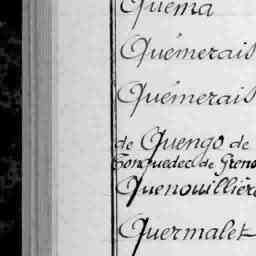 Quema
Quémerais
Quémerais
de Quengo de
Tonquedec de Greno
Quenouillière
Quermalet